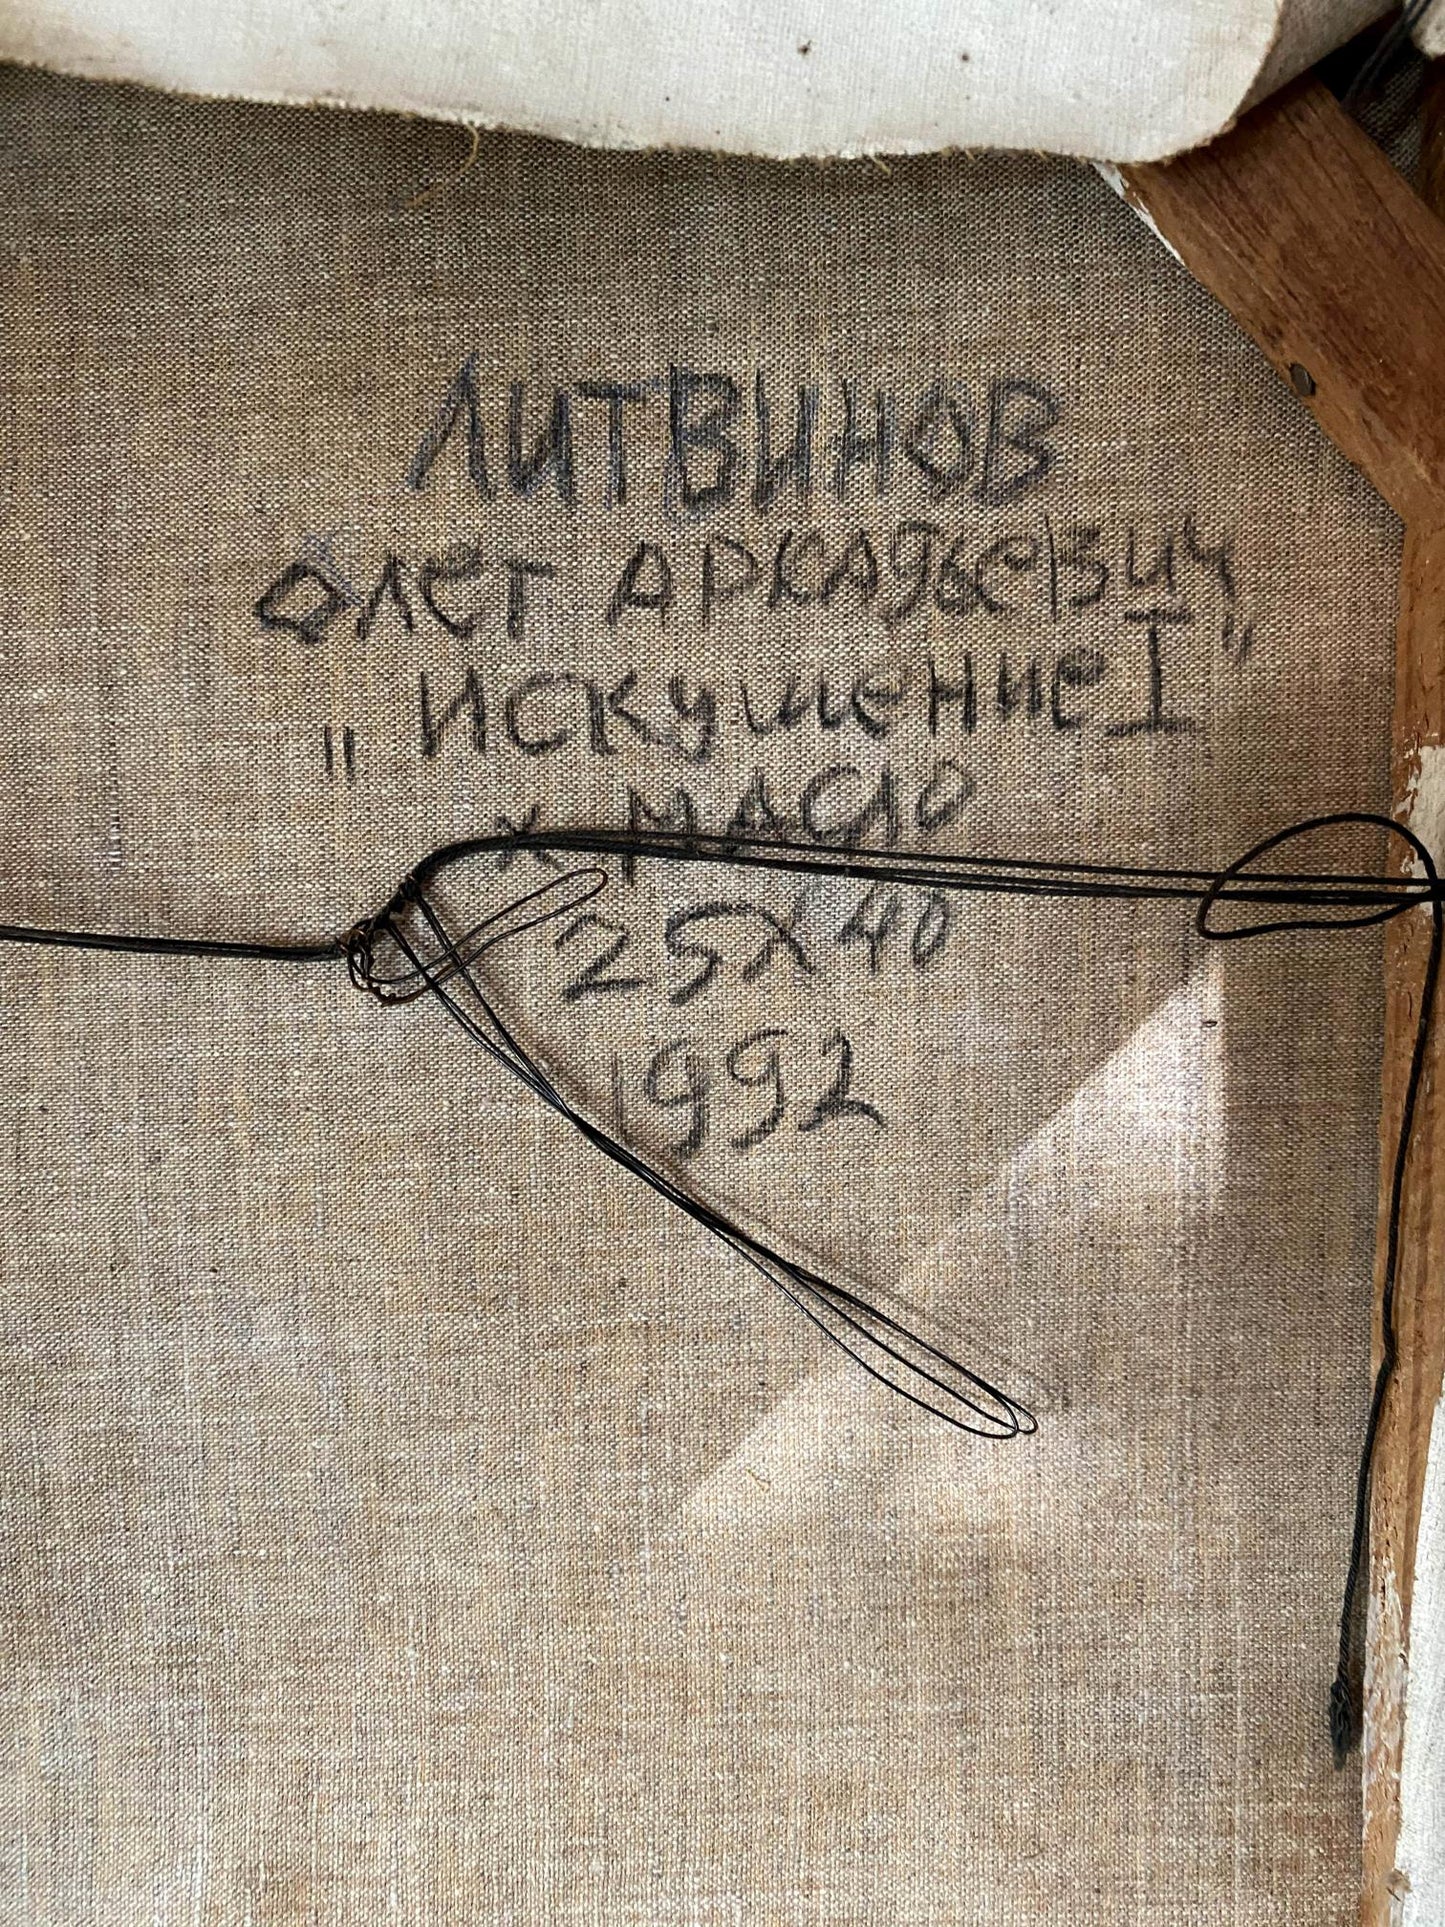 ЛИТВИНОВ
Олег Аркадьевич
„Искушение I"
х. масло
25х40
1992